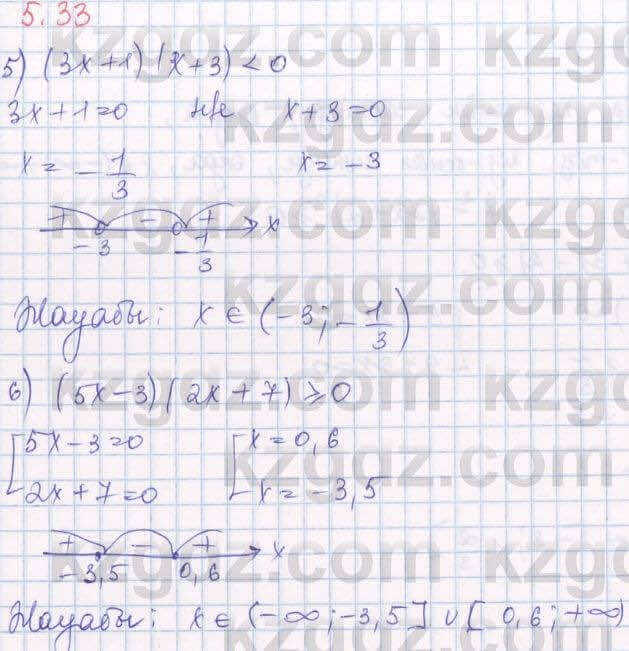 5.33
5) (3x+1)(x+3)<0
3x+1=0 н/е x+3=0
x = -1/3 x = -3
+ - + x
-3 -1/3
Жауабы: x ∈ (-3; -1/3)
6) (5x-3)(2x+7)≥0
[5x-3=0 [x=0,6
2x+7=0 x=-3,5
+ - + x
-3,5 0,6
Жауабы: x ∈ (-∞; -3,5] ∪ [0,6; +∞)
kzgdz.com